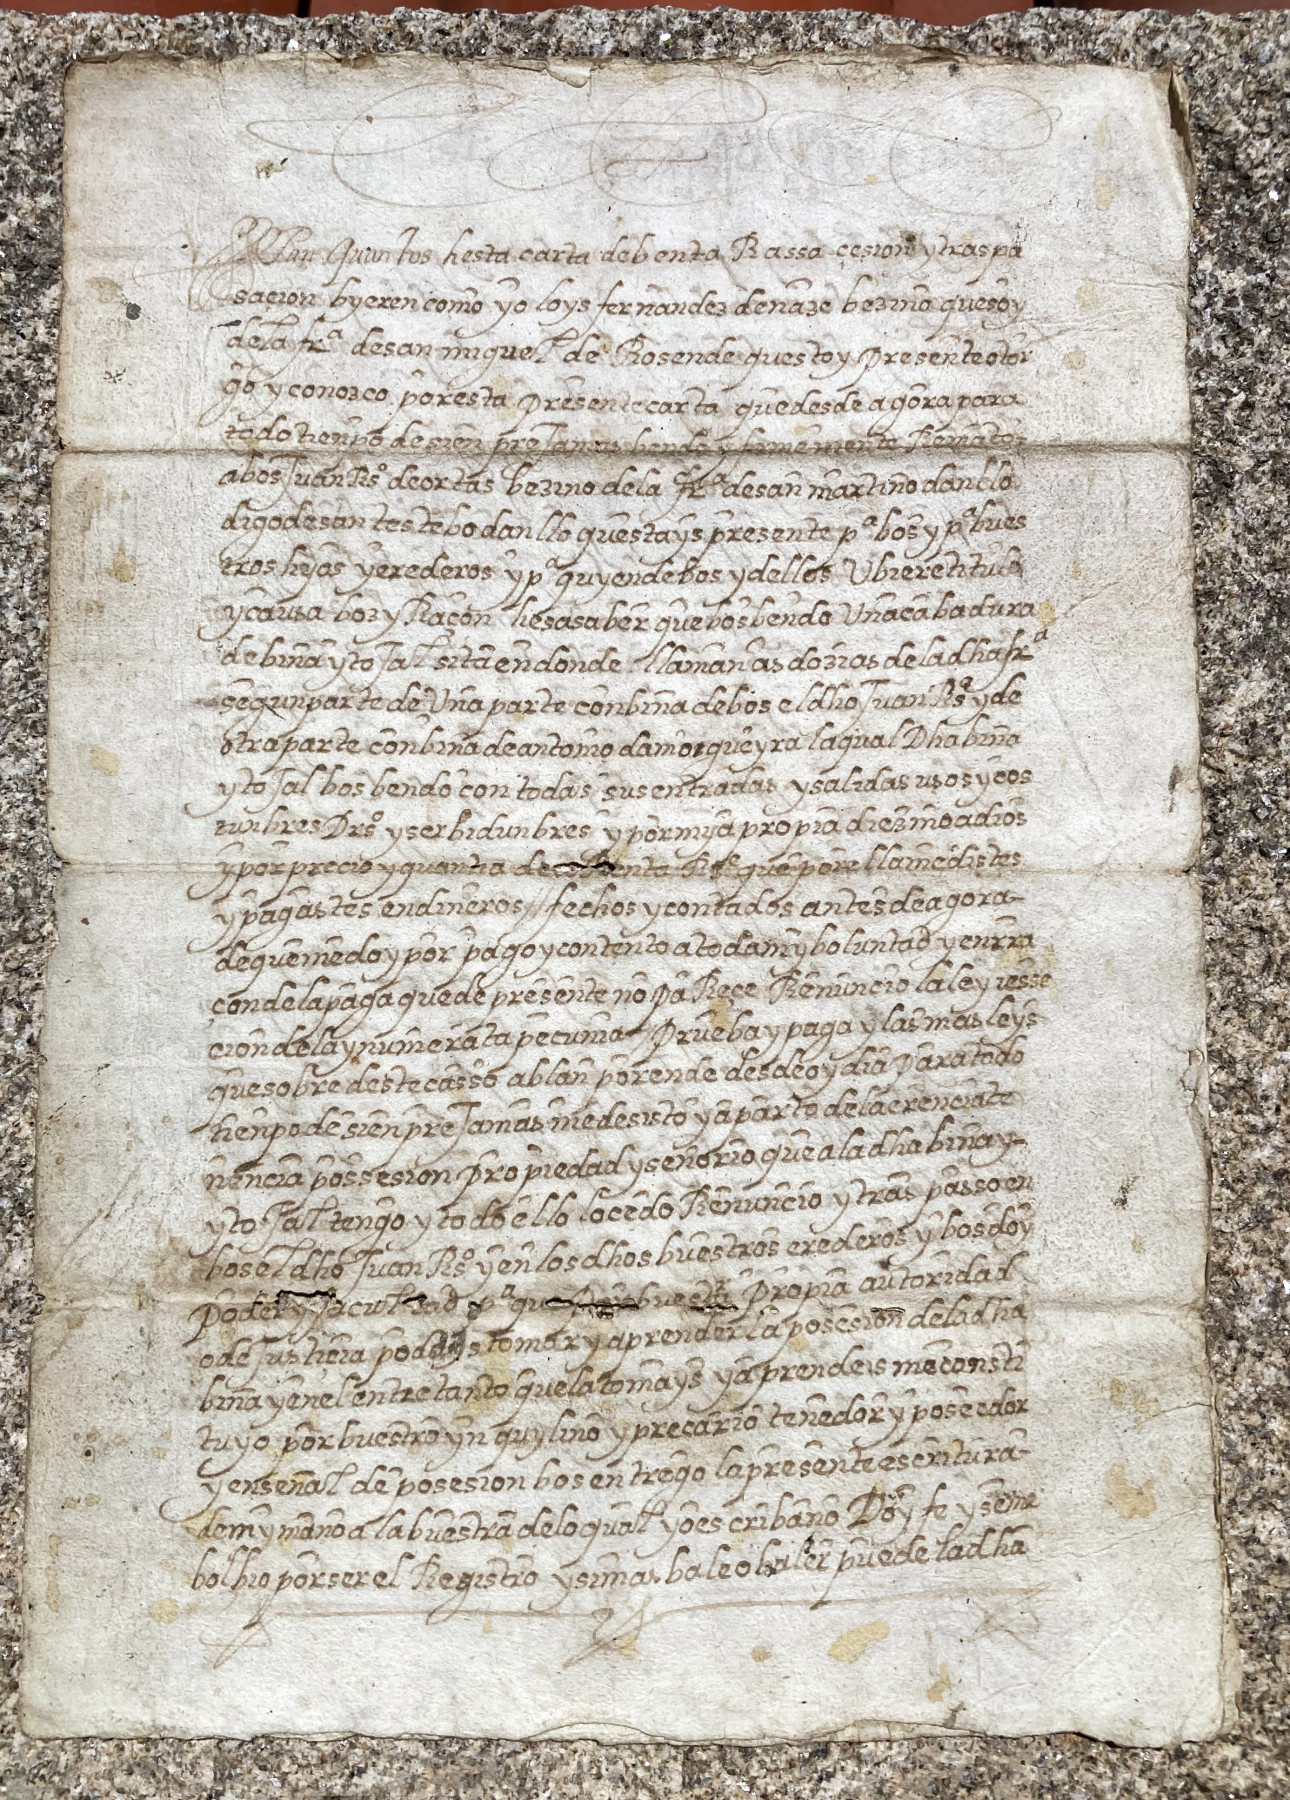 quantos hesta carta de benta Rassa cesion y traspa
sacion byeren como yo loys fernandez de naze bezino que soy
de la frª de san miguel de Rosende questoy presente otor
go y conozco por esta presente carta que desde agora para
todo tienpo de sien pre Jamas bendo y firmemente Remato
a bos Juan Rºs de ortas bezino de la frª de san martiño danllo
digo de santestebo danllo questays presente pª bos y pª bues
tros hijos y erederos y pª quyen de bos y dellos Ubiere titulo
y causa boz y Raçon hes a saber que bos bendo Una cabadura
de biña y to Jal sita en donde llaman as dozias de la dha frª
segun parte de Una parte con biña de bos el dho Juan Rºs y de
otra parte con biña de antonio damorgueyra la qual Dha biña
y to Jal bos bendo con todas sus entradas y salidas usos y cos
tunbres Drºs y serbidunbres y por mya propia diezmo a dios
y por precio y quantia de Rºs que por ella me distes
y pagastes en dineros fechos y contados antes de agora
de que me doy por pago y contento a toda my boluntad y en rra
çon de la paga que de presente no pa Rece Renuncio la ley y esse
cion de la ynumerata pecunia Prueba y paga y las mas leys
que sobre deste casso ablan por ende desde oy dia para todo
tienpo de sien pre Jamas me desisto y aparto de la erencia te
nencia possesion propiedad y señorio que a la dha biña y
y to Jal tengo y todo ello lo cedo Renuncio y tras passo en
bos el dho Juan Rºs y en los dhos buestros erederos y bos doy
Poder y facultad pª que propia autoridad
o de Justicia podays tomar y aprender la posesion de la dha
biña y en el entretanto que la tomays y a prendeis me consti
tuyo por buestro yn quylino y precario tenedor y poseedor
y en señal de posesion bos entrego la presente escritura
de my mano a la buestra de lo qual yo escribano Doy fe y se me
bolbio por ser el Registro y si mas bale o baler puede la dha